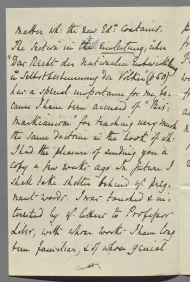 matter wh: the new Edn. contains.
The section in the Einleitung, über
"Das Recht der naturalen Entwicklung
u Selbstbestimmung der Völker" (§60)
has a special importance for me be-
cause I have been accused of "Bis-
marckianism" for teaching very much
the same doctrine in the book of wh:
I had the pleasure of sending you a
copy a few weeks ago. In future I
shall take shelter behind yr. preg-
nant words. I was touched & in-
terested by yr. letter to Professor
whose works I have long
been familiar, & of whose genial